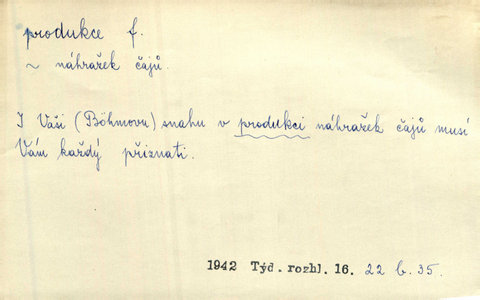 produkce f.
~ náhražek čajů.
I Vaši (Böhmovu) snahu v produkci náhražek čajů musí
Vám každý přiznati.
1942 Týd. rozhl. 16. 22 b. 35.